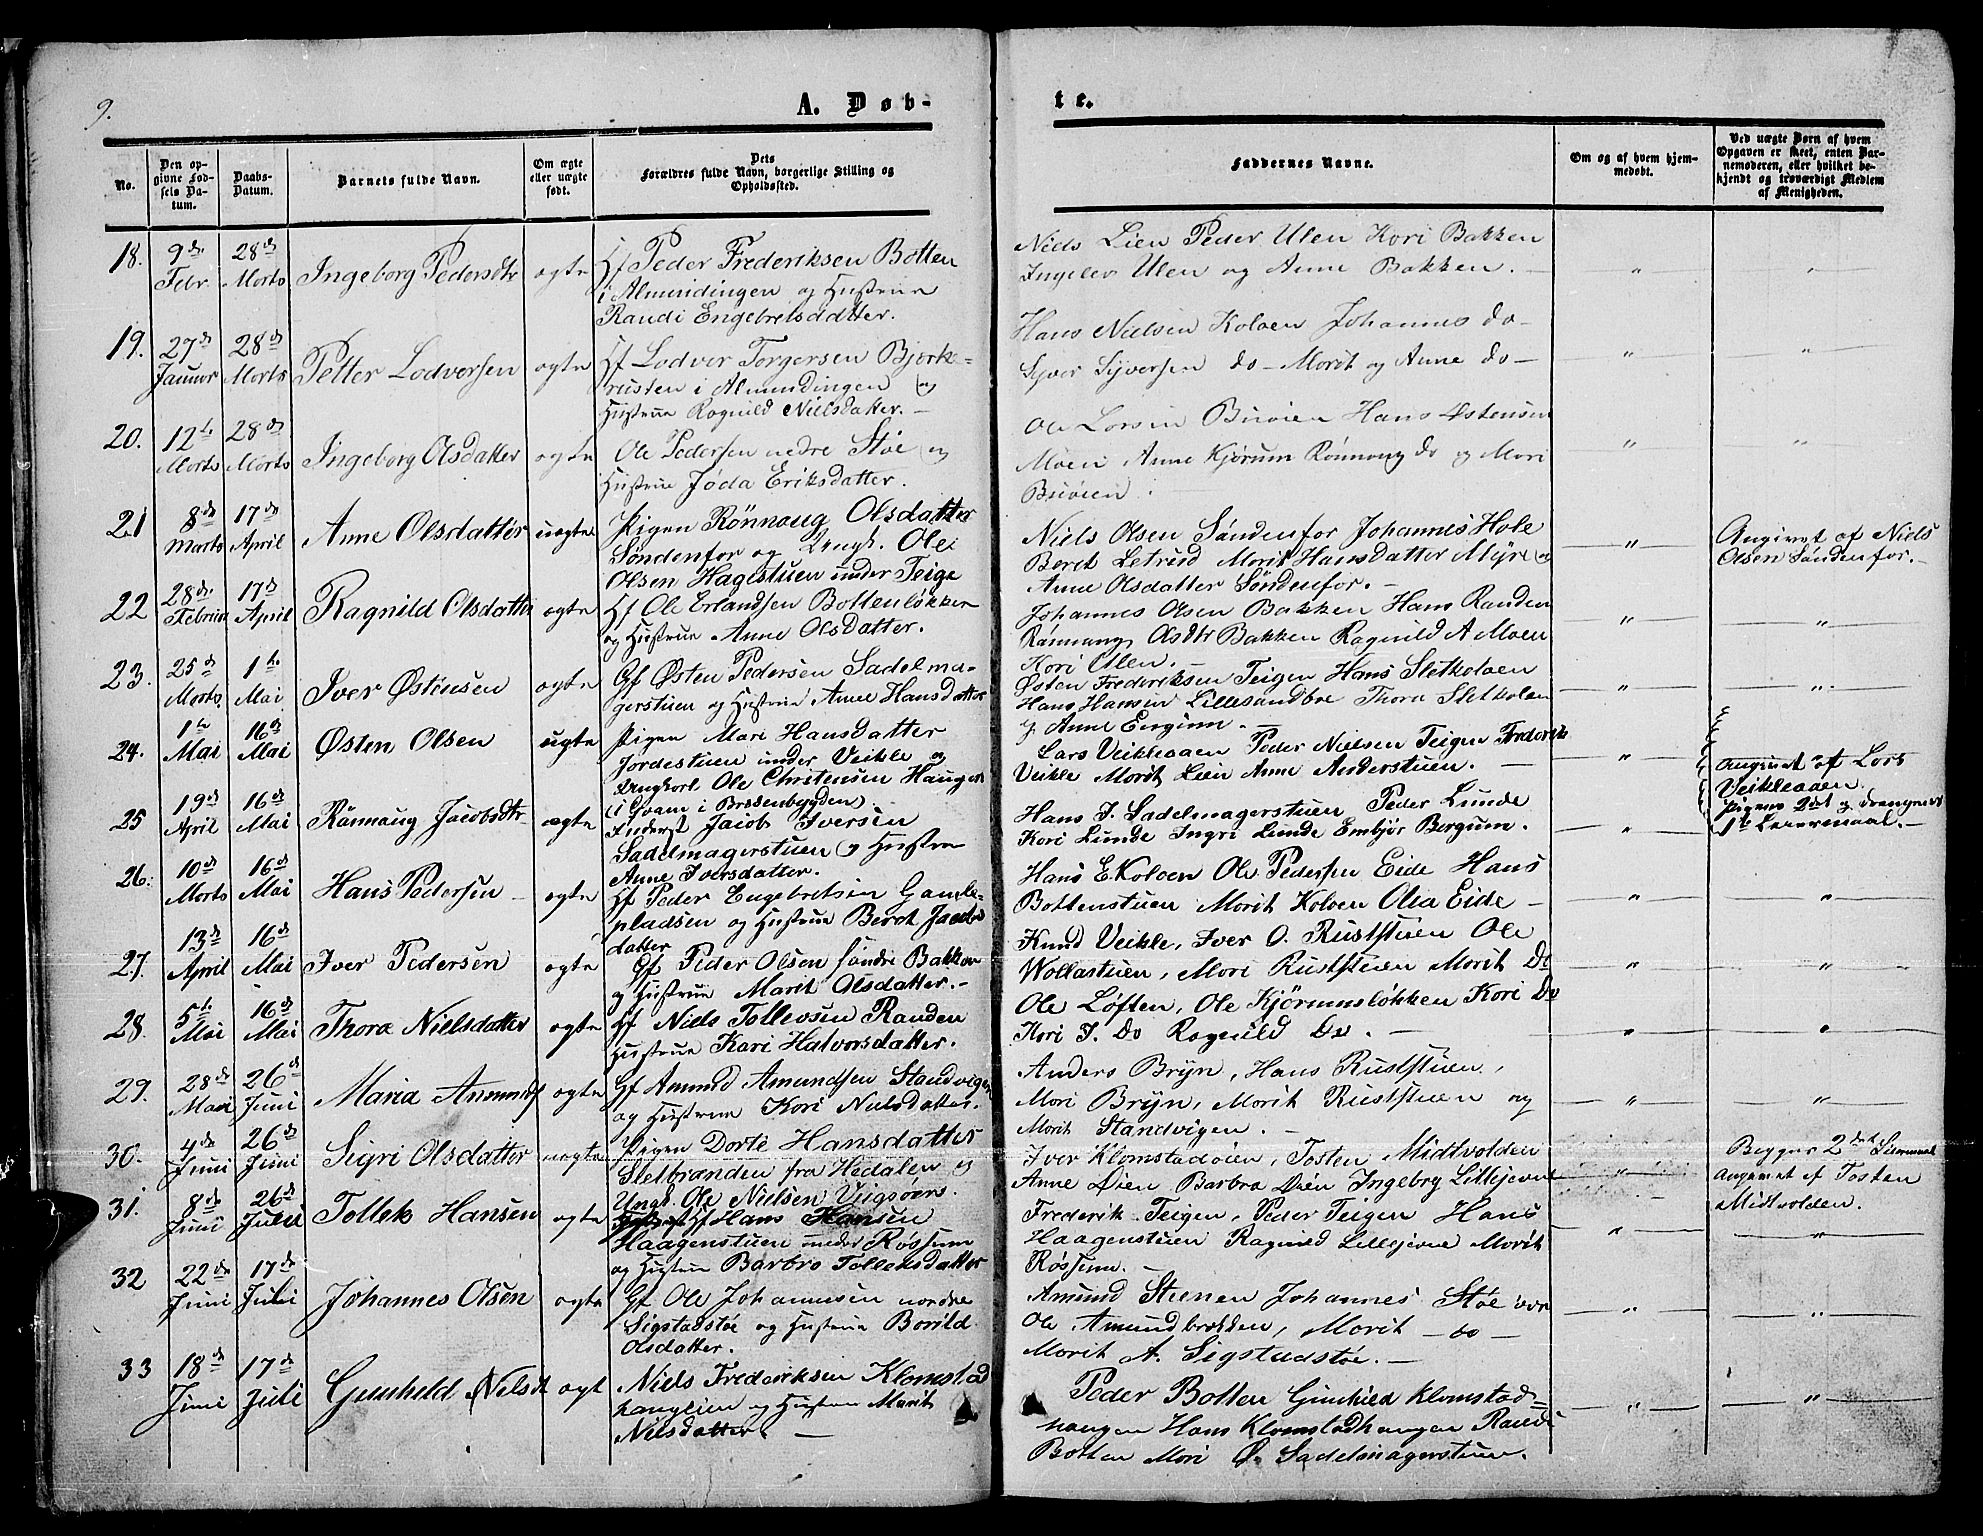 9.
A. Døb-
te.
No.
Den op-
givne Fød-
sels Da-
tum.
Daabs-
Datum.
Barnets fulde Navn.
Om ægte
eller uægte
født.
Dets
Forældres fulde Navn, borgerlige Stilling og
Opholdssted.
Faddernes Navne.
Om og af hvem hjem-
medøbt.
Ved uægte Børn af hvem
Opgaven er skeet, enten Bar-
nemoderen, eller hvilket be-
kjendt og troværdigt Medlem
af Menigheden.
18. 9de Febr 28de Marts Ingeborg Pedersdtr ægte
Hf Peder Frederiksen Botten
i Almundingen og Hustrue
Randi Engebretsdatter.
Niels Lien Peder Ulen Kari Bakken
Ingelev Ulen og Anne Bakken. — " "
19. 27de Januar 28de Marts Petter Lodversen ægte
Hf Lodver Torgersen Bjørke-
rusten i Almundingen og
Hustrue Ragnild Nielsdatter. —
Hans Nielsen Koloen Johannes do —
Syver Syversen do — Marit og Anne do — " "
20. 12te Marts 28de Marts Ingeborg Olsdatter ægte
Ole Pedersen nedre Støe og
Hustrue Jøda Eriksdatter.
Ole Larsen Buøien Hans Østensen
Moen Anne Kjørum Rønnaug do og Mari
Buøien. — " "
21 8de Marts 17de April Anne Olsdatter uægte
Pigen Rønnaug Olsdatter
Søndenfor og Ungk. Ole
Olsen Hagestuen under Teige
Niels Olsen Søndenfor Johannes Hole
Beret Letrud Marit Hansdatter Myre og
Anne Olsdatter Søndenfor. — "
Angivet af Niels
Olsen Søndenfor. —
22 28de Februar 17de April Ragnild Olsdatter ægte
Hf Ole Erlandsen Bottenløkken
og Hustrue Anne Olsdatter.
Johannes Olsen Bakken Hans Randen
Rønnaug Olsdtr Bakken Ragnild A Moen
Kari Ulen. — " "
23. 25de Marts 1te Mai Iver Østensen ægte
Gf Østen Pedersen Sadelma-
gerstuen og Hustrue Anne Hansdatter
Østen Frederiksen Teigen Hans Sletkoloen
Hans Hansen Lillesandboe Thora Sletkolen
og Anne — " "
24. 1te Mai 16de Mai Østen Olsen uægte
Pigen Mari Hansdatter
Jordestuen under Veikle og
Ungkarl Ole Christensen Haugen
(i Gram i )
Lars Veikleaaen Peder Nielsen Teigen Frederik
Veikle Marit Lien Anne Anderstuen. — "
Angivet af Lars
Veikleaaen.
Pigens 2det og Drengens
1te Leiermaal. —
25 19de April 16de Mai Rønnaug Jacobsdtr. ægte
Inderst Jacob Iversen
Sadelmagerstuen og Hustrue
Anne Iversdatter.
Hans J. Sadelmagerstuen Peder Lunde
Kari Lunde Ingri Lunde Embjør Bergum. — "
26. 10de Marts 16de Mai Hans Pedersen — ægte
Hf Peder Engebretsen Gamle-
pladsen og Hustrue Beret Jacobs
datter
Hans E. Koloen Ole Pedersen Eide Hans
Bottenstuen Marit Koloen Olia Eide — " "
27. 13de April 16de Mai Iver Pedersen ægte
Gf Peder Olsen søndre Bakken
og Hustrue Marit Olsdatter. —
Knud Veikle, Iver O. Ruststuen Ole
Wollastuen, Mari Ruststuen Marit Do " "
28. 5te Mai 16de Mai Thora Nielsdatter ægte
Hf Niels Tollevsen Randen
Hustrue Kari Halvorsdatter.
Ole Løften, Ole Kjørumsløkken Kari Do
Kari J. Do Ragnild Do. — " "
29. 28de Mai 26de Juni Maria Amunds ægte
Gf Amund Amundsen Standvigen
og Hustrue Kari Nielsdatter.
Anders Bryn, Hans Ruststuen,
Mari Bryn, Marit Ruststuen og
Marit Standvigen. — " "
30. 4de Juni 26de Juni Sigri Olsdatter uægte
Pigen Dorte Hansdatter
Sletbranden fra Hedalen og
Ungk. Ole Nielsen Viigsøens.
Iver Klomstadøien, Tosten Midtvolden
Anne Øien Barbra Øien Ingebrg Lillejevne "
Begges 2det
Angivet af Tosten
Midtvolden.
31. 8de Juni 26de Juli Tollek Hansen ægte
Hf Hans Hansen
Haagenstuen under Røssum
og Hustrue Barbro Tolleksdatter
Frederik Teigen, Peder Teigen Hans
Haagenstuen Ragnild Lillejevne Marit
Røssum. — " "
32 22de Juni 17de Juli Johannes Olsen ægte
Gf Ole Johannesen nordre
Sigstadstøe og Hustrue Borild
Olsdatter.
Amund Stenen Johannes Støe
Ole Amundbakken, Marit — do —
Marit A. Sigstadstøe. — " "
33 18de Juni 17de Juli Gunhild Nielsd ægt
Niels Frederiksen Klomstad
haugen og Hustrue Marit
Nielsdatter. —
Peder Botten Gunhild Klomstad-
haugen Hans Klomstadhaugen Randi
Botten Mari Ø. Sadelmagerstuen. " "